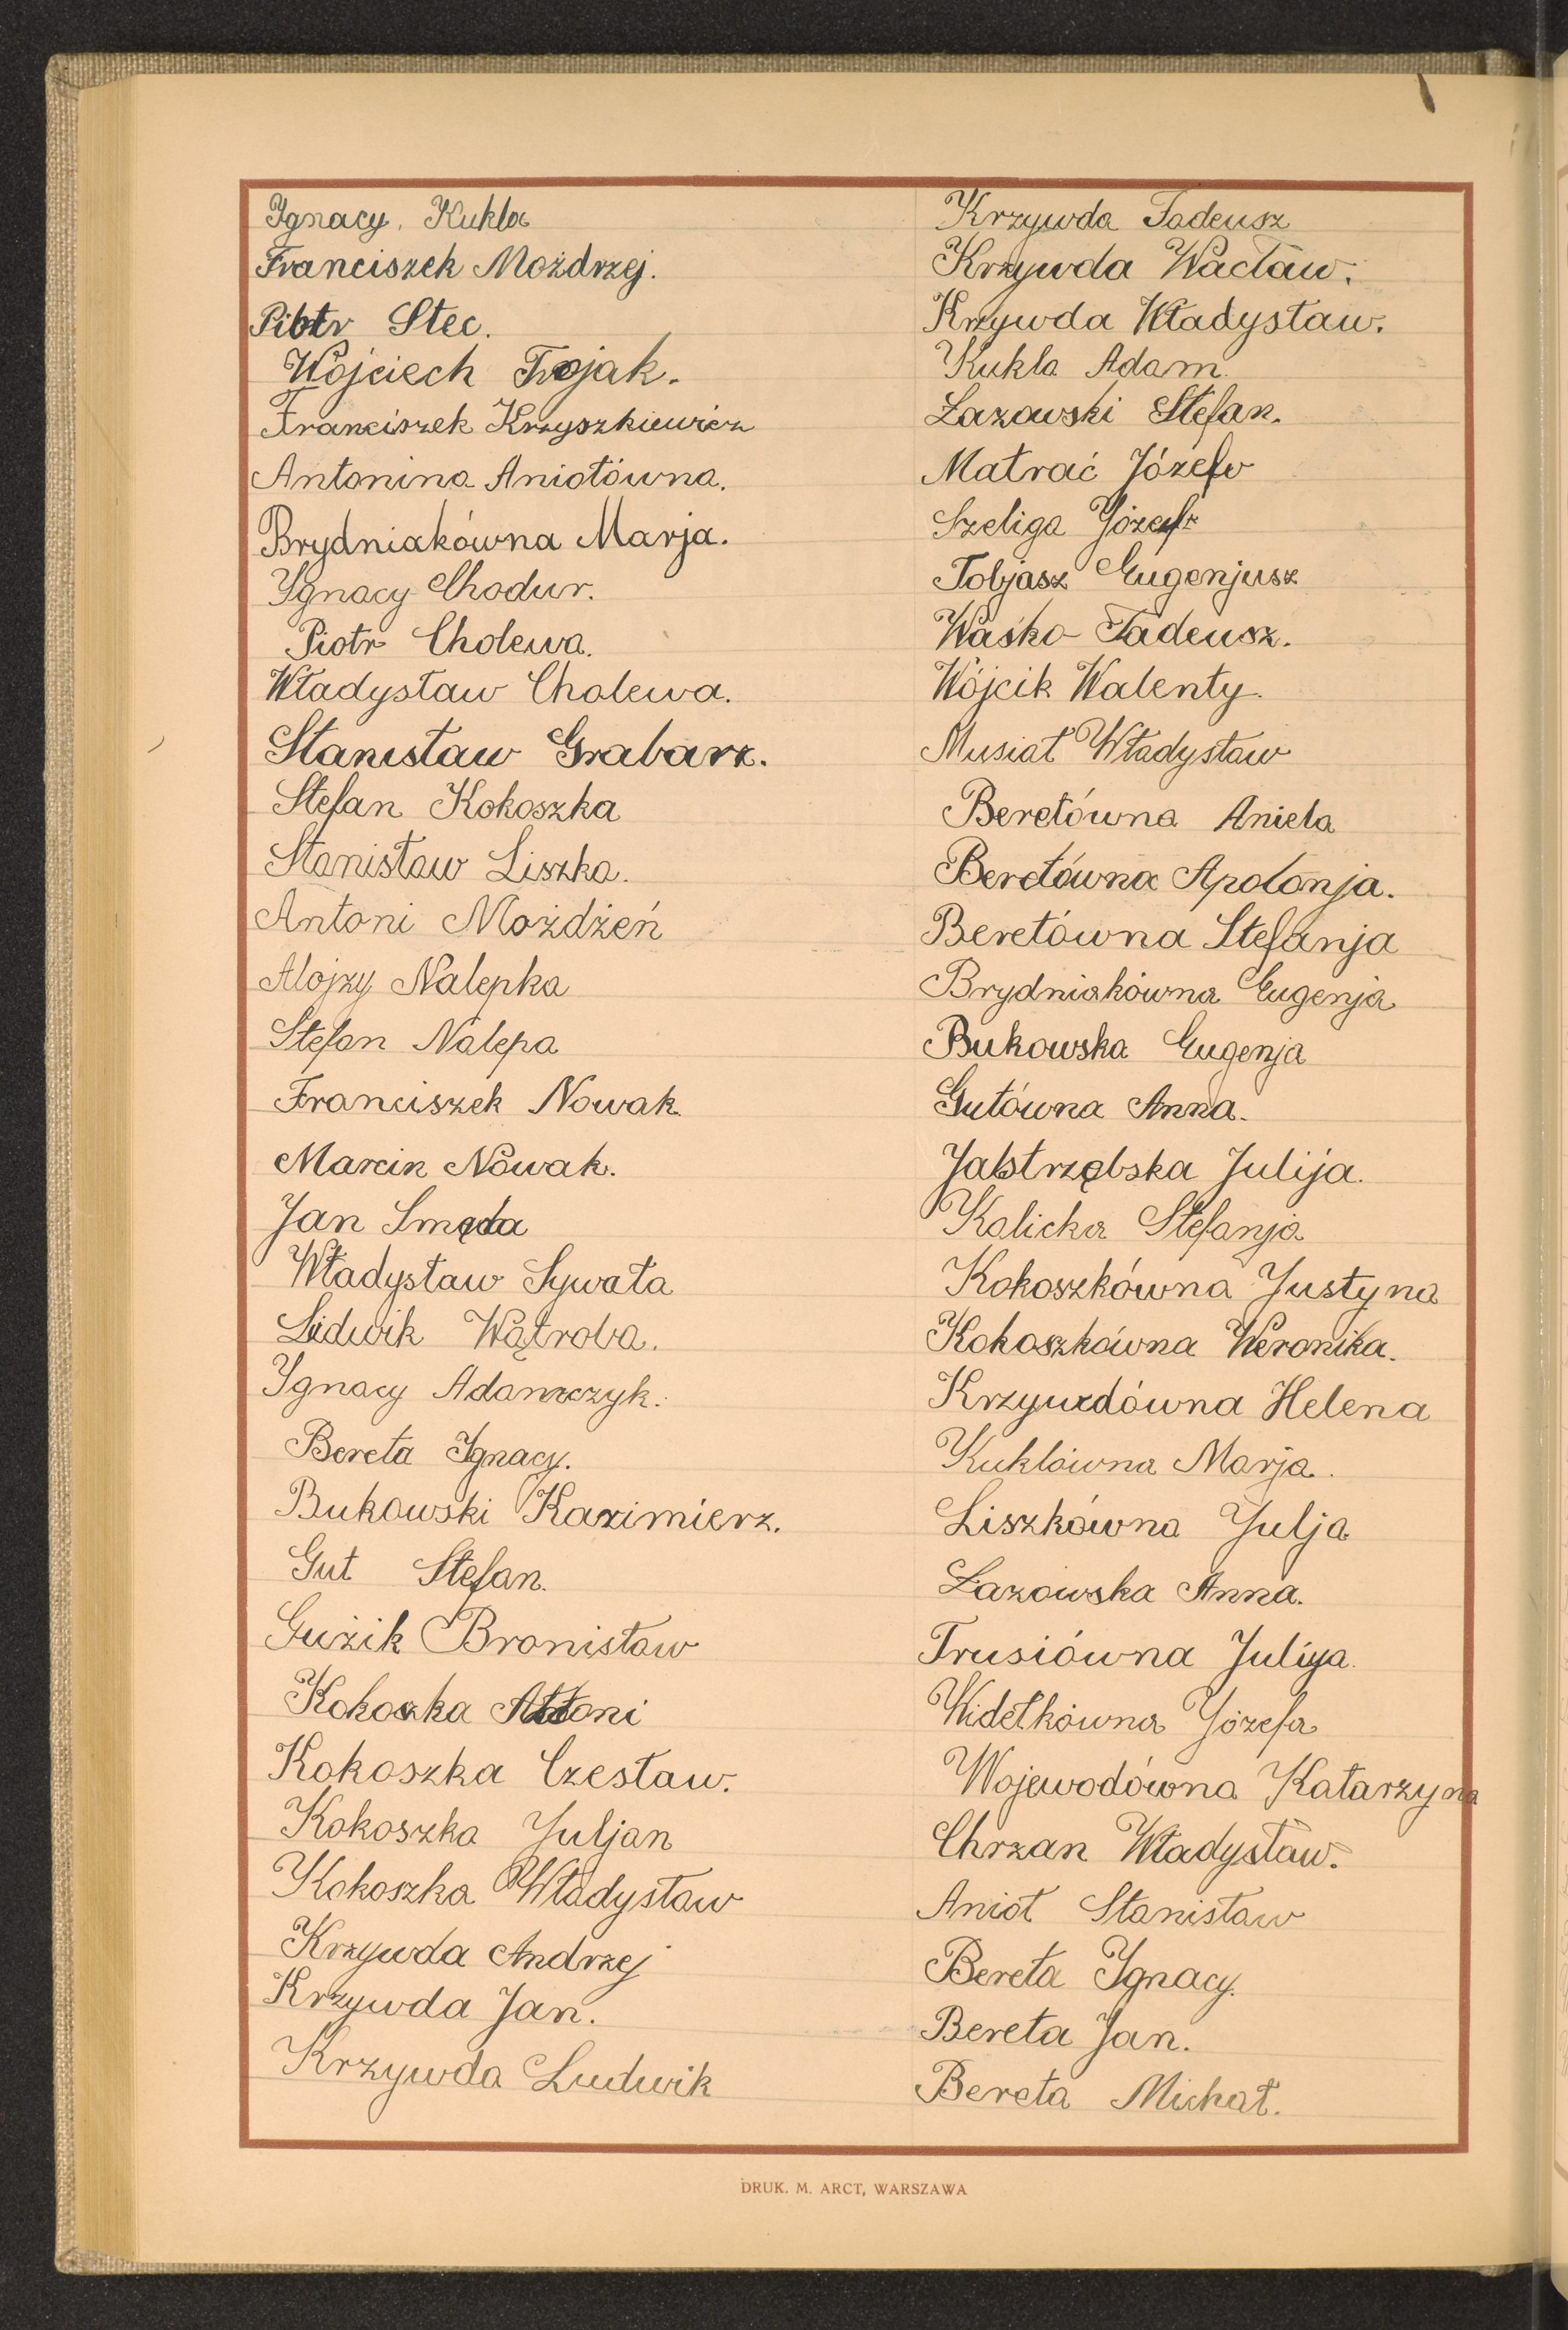 Ignacy Kukla
Franciszek Możdrzej.
Piotr Stec.
Wojciech Trojak.
Franciszek Krzyszkiewicz
Antonina Aniołówna.
Brydniakówna Marja.
Ignacy Chodur.
Piotr Cholewa.
Władysław Cholewa.
Stanisław Grabarz.
Stefan Kokoszka
Stanisław Liszka.
Antoni Możdżeń
Alojzy Nalepka
Stefan Nalepa
Franciszek Nowak
Marcin Nowak.
Jan Smęda
Władysław Sywała
Ludwik Wątroba.
Ignacy Adamczyk.
Bereta Ignacy.
Bukowski Kazimierz.
Gut Stefan.
Guzik Bronisław
Kokoszka Antoni
Kokoszka Czesław.
Kokoszka Juljan
Kokoszka Władysław
Krzywda Andrzej
Krzywda Jan.
Krzywda Ludwik
Krzywda Tadeusz
Krzywda Wacław.
Krzywda Władysław.
Kukla Adam.
Łazowski Stefan.
Matrać Józef
Szeliga Józef
Tobjasz Eugenjusz
Waśko Tadeusz.
Wójcik Walenty.
Musiał Władysław
Beretówna Aniela
Beretówna Apolonja.
Beretówna Stefanja
Brydniakówna Eugenja
Bukowska Eugenja
Gutówna Anna.
Jastrzębska Julija.
Kalicka Stefanja
Kokoszkówna Justyna
Kokoszkówna Weronika.
Krzywdówna Helena
Kuklówna Marja.
Liszkówna Julja
Łazowska Anna.
Trusiówna Julija.
Widełkówna Józefa
Wojewodówna Katarzyna
Chrzan Władysław.
Anioł Stanisław
Bereta Ignacy.
Bereta Jan.
Bereta Michał.
DRUK. M. ARCT, WARSZAWA